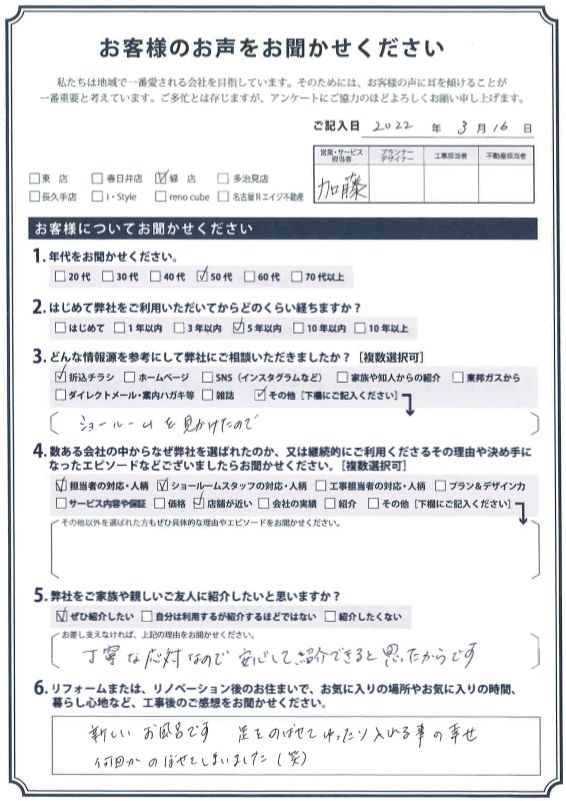 お客様のお声をお聞かせください
私たちは地域で一番愛される会社を目指しています。そのためには、お客様の声に耳を傾けることが
一番重要と考えています。ご多忙とは存じますが、アンケートにご協力のほどよろしくお願い申し上げます。
ご記入日 2022 年 3 月 16 日
営業・サービス担当者 プランナーデザイナー 工事担当者 不動産担当者
加藤
□東 店 □春日井店 ☑緑 店 □多治見店
□長久手店 □i・Style □reno cube □名古屋Rエイジ不動産
お客様についてお聞かせください
1. 年代をお聞かせください。
□20代 □30代 □40代 ☑50代 □60代 □70代以上
2. はじめて弊社をご利用いただいてからどのくらい経ちますか？
□はじめて □1年以内 □3年以内 ☑5年以内 □10年以内 □10年以上
3. どんな情報源を参考にして弊社にご相談いただきましたか？［複数選択可］
☑折込チラシ □ホームページ □SNS（インスタグラムなど） □家族や知人からの紹介 □東邦ガスから
□ダイレクトメール・案内ハガキ等 □雑誌 ☑その他［下欄にご記入ください］
ショールームを見かけたので
4. 数ある会社の中からなぜ弊社を選ばれたのか、又は継続的にご利用くださるその理由や決め手に
なったエピソードなどございましたらお聞かせください。［複数選択可］
☑担当者の対応・人柄 ☑ショールームスタッフの対応・人柄 □工事担当者の対応・人柄 □プラン&デザイン力
□サービス内容や保証 □価格 ☑店舗が近い □会社の実績 □紹介 □その他［下欄にご記入ください］
その他以外を選ばれた方もぜひ具体的な理由やエピソードをお聞かせください。
5. 弊社をご家族や親しいご友人に紹介したいと思いますか？
☑ぜひ紹介したい □自分は利用するが紹介するほどではない □紹介したくない
お差し支えなければ、上記の理由をお聞かせください。
丁寧な応対なので 安心して紹介できると思ったからです
6. リフォームまたは、リノベーション後のお住まいで、お気に入りの場所やお気に入りの時間、
暮らし心地など、工事後のご感想をお聞かせください。
新しい お風呂です 足をのばせてゆったり入れる事の幸せ
何回かのぼせてしまいました（笑）